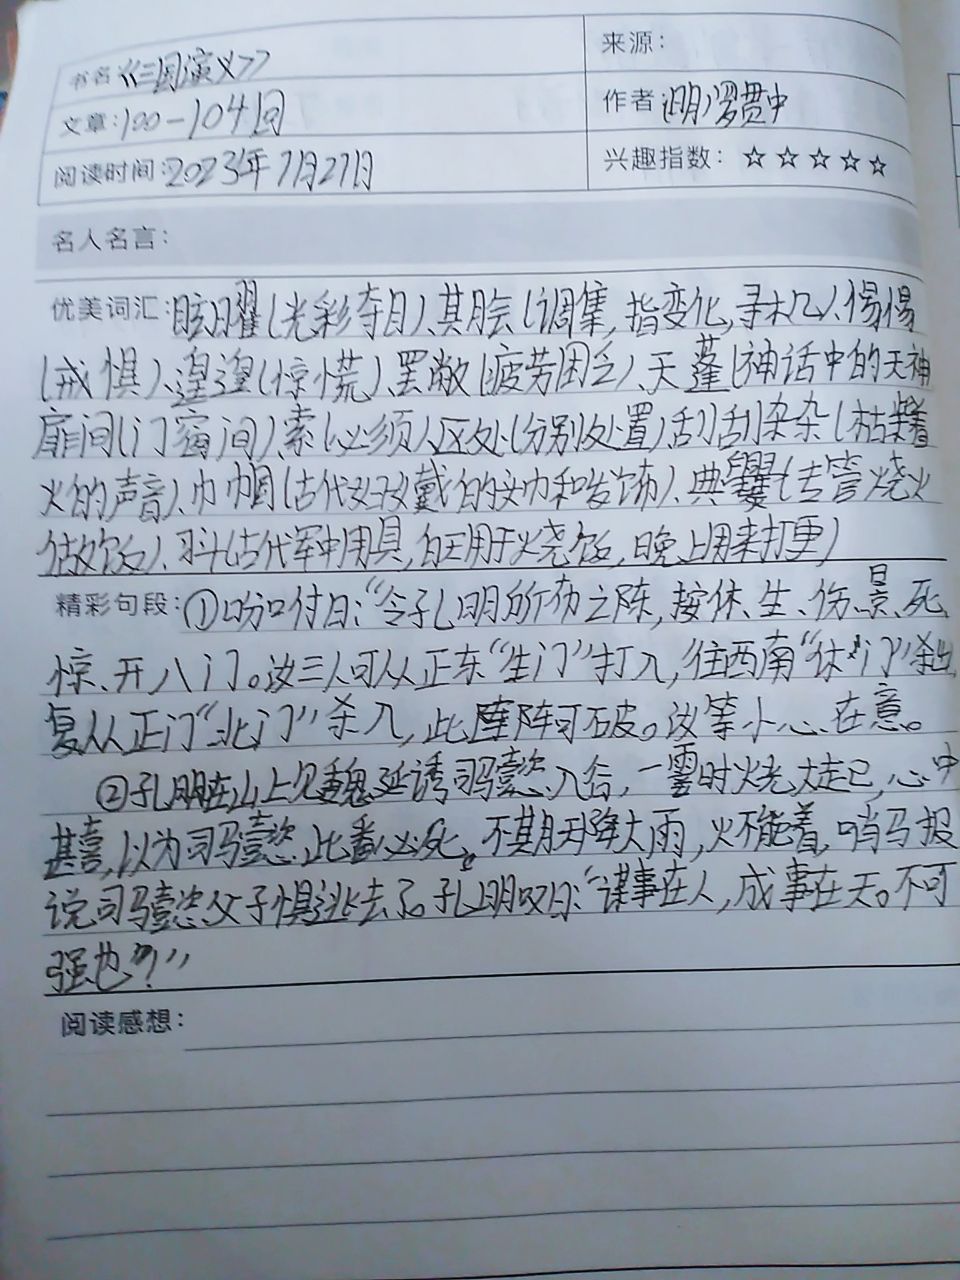 书名《三国演义》
来源：
文章：100-104回
作者 明 罗贯中
阅读时间：2023年7月27日
兴趣指数：☆☆☆☆☆
名人名言：
优美词汇：眩曜（光彩夺目）、其脍（调集，指变化，寻机）、惕惕
（戒惧）、遑遑（惊慌）、罢敝（疲劳困乏）、天蓬（神话中的天神
扉间（门窗间）、索（必须）、区处（分别处置）、刮刮杂杂（枯燥着
火的声音）、巾帼（古代妇女戴的文巾和发饰）、典爨（专管烧火
做饭）、刁斗（古代军中用具，白天用于烧饭，晚上用来打更）
精彩句段：①吩咐曰：“令孔明所布之阵，按休、生、伤、景、死、
惊、开八门。汝三人可从正东“生门”打入，往西南“休门”杀出
复从正门“北门”杀入，此阵可破。汝等小心在意。
②孔明在山上见魏延诱司马懿入谷，一霎时火光大起，心中
甚喜，以为司马懿此番必死。不期天降大雨，火不能着，哨马报
说司马懿父子惧逃去了。孔明叹曰：“谋事在人，成事在天。不可
强也？”
阅读感想：